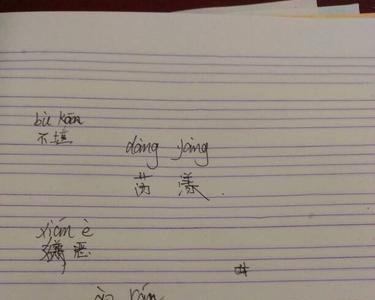 bù kān
不堪
dàng yàng
荡 漾
xián è
嫌恶